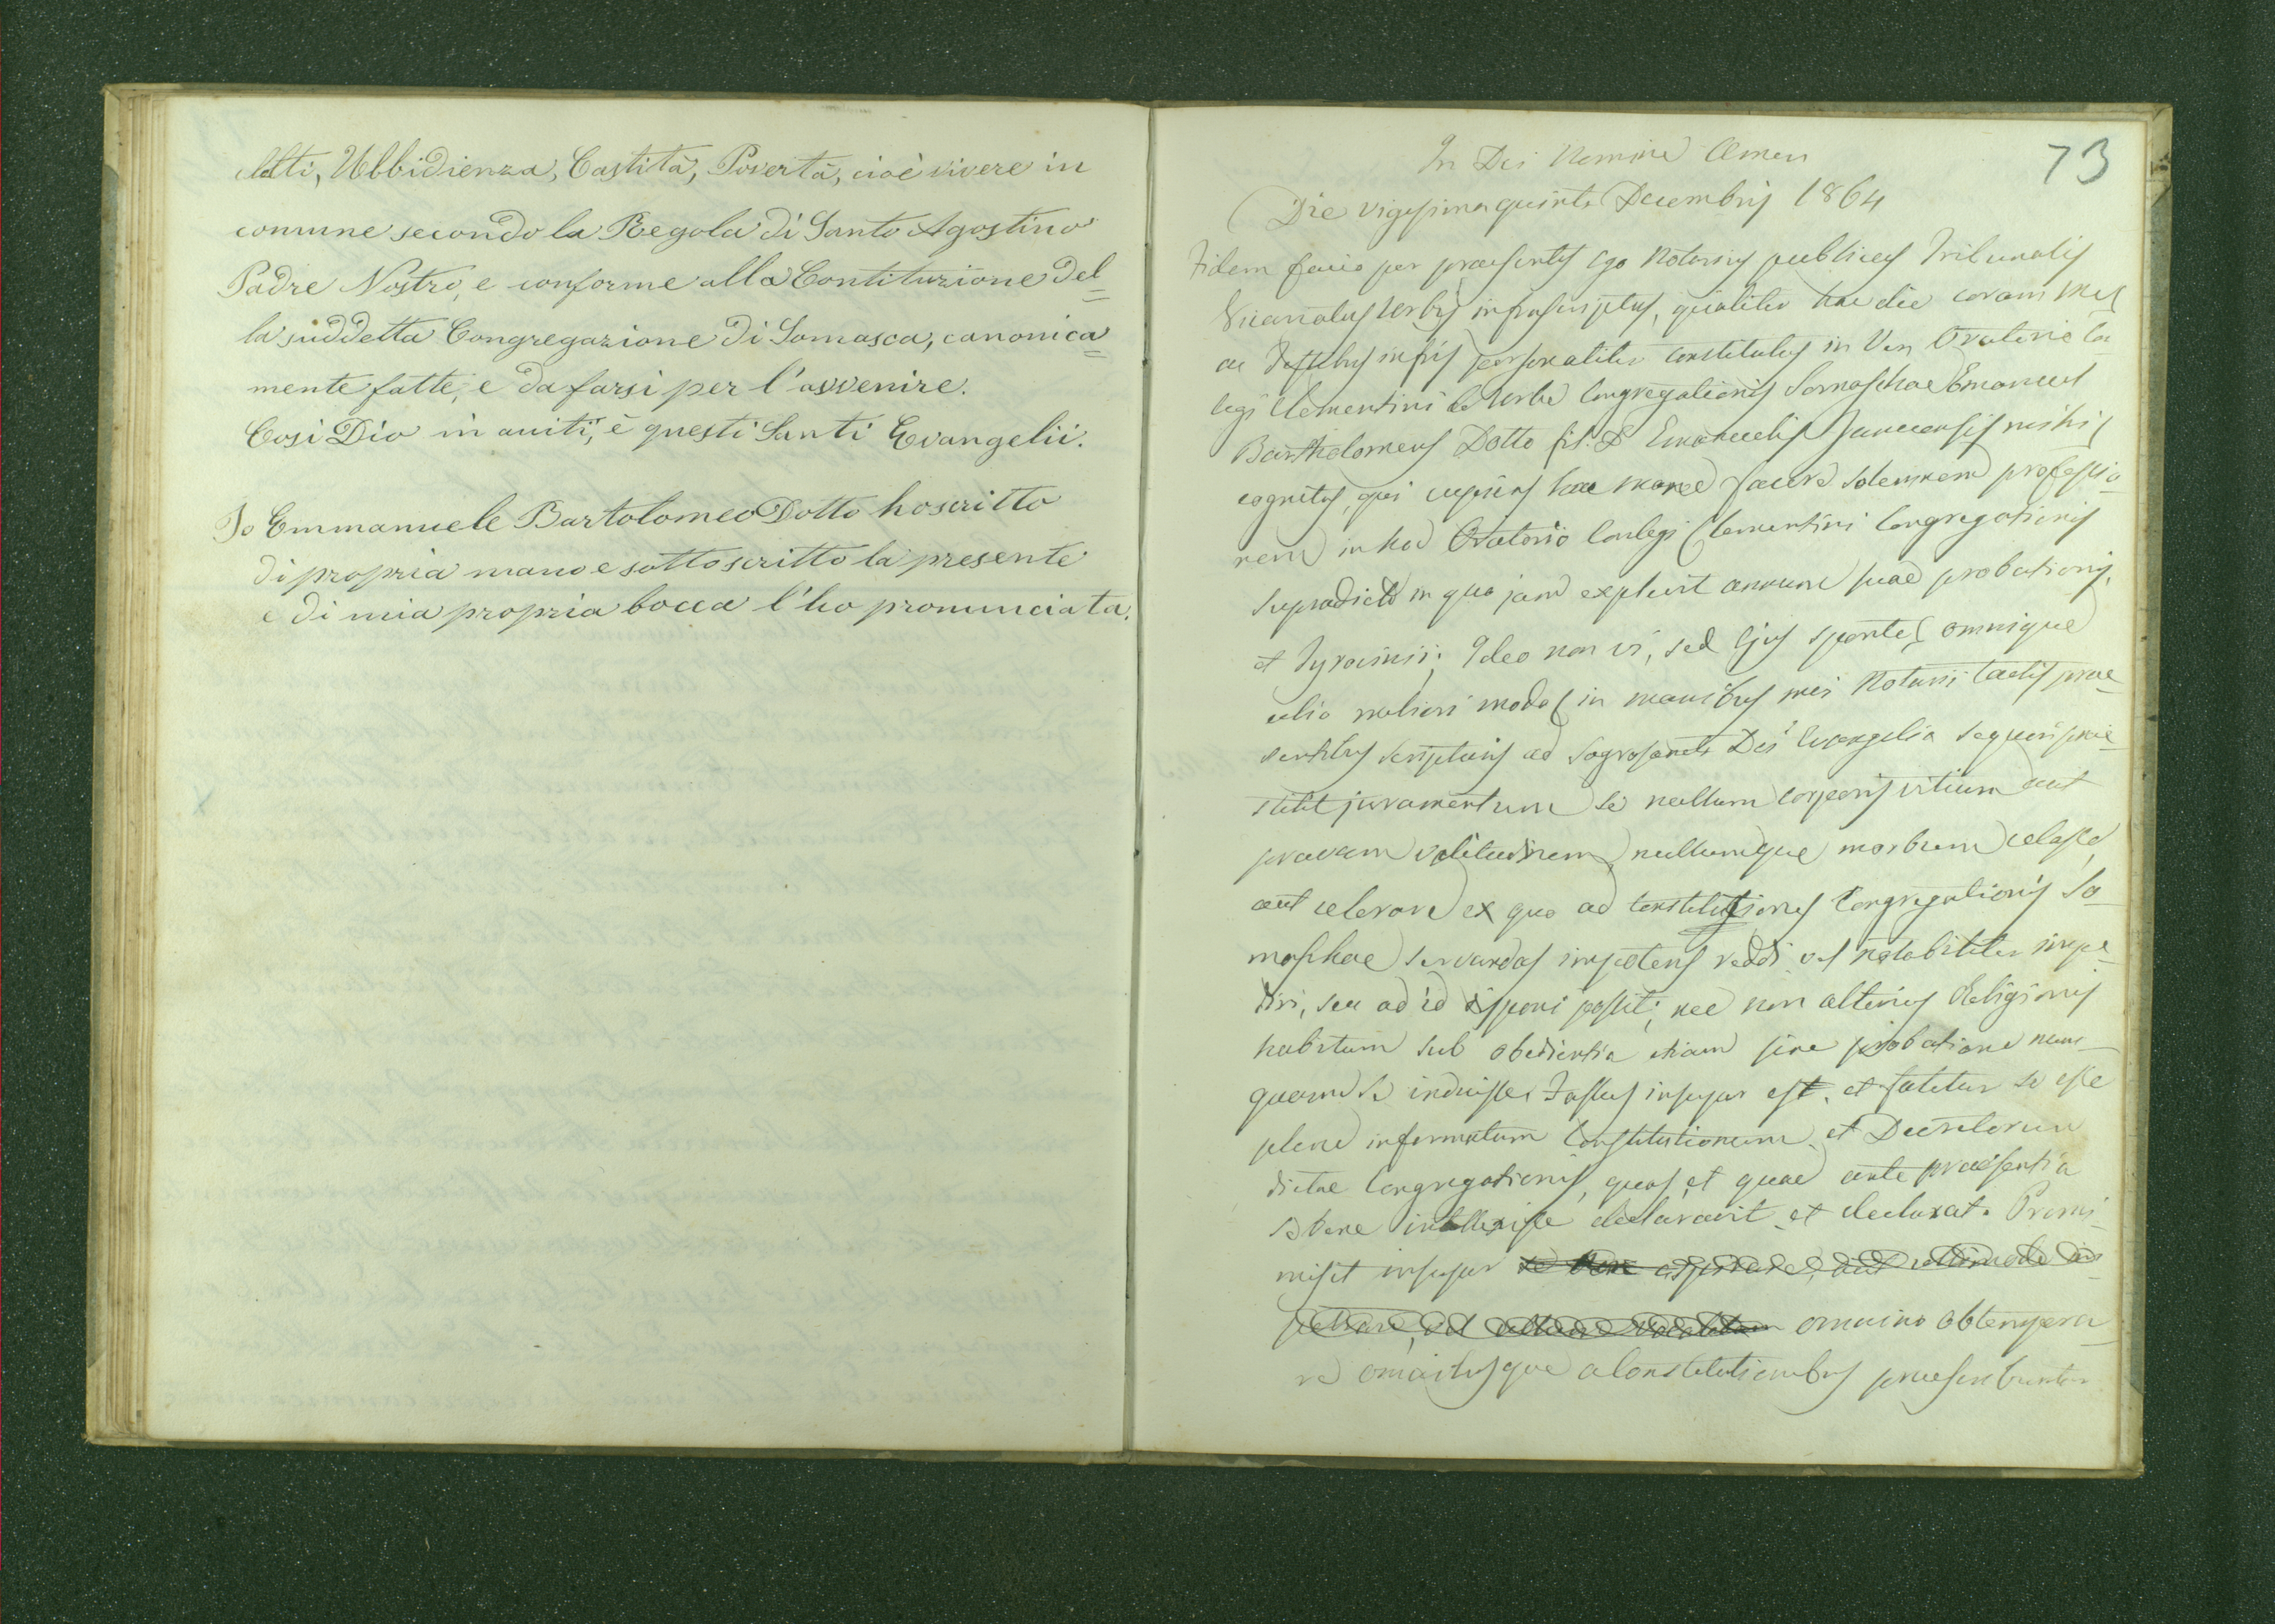 letti, Ubbidienza, Castità, Povertà, cioè vivere in
comune secondo la Regola di Santo Agostino
Padre Nostro, e conforme alla Contituzione del=
la suddetta Congregazione di Somasca, canonica=
mente fatte, e da farsi per l'avvenire.
Cosi Dio m aiuti, è questi Santi Evangelii.
Io Emmanuele Bartolomeo Dotto ho scritto
di propria mano e sottoscritto la presente
e di mia propria bocca l'ho pronunciata.
73
In Dei Nomine Amen
Die vigesimaquinta Decembris 1864
Fidem facio per praesentes ego Notarius publicus Tribunalis
Vicariatus Urbis infrascriptus, qualiter hac die coram me
ac Testibus infris personaliter constitutus in Ven Oratorio Con
legi Clementini de Urbe Congregationis Somaschae Emanuel
Bartholomeus Dotto fil. D Emanuelis Januensis mihi
cognitus, qui cupiens hac mane facere solemnem professio-
nem in hoc Oratorio Conlegi Clementini Congregationis
supradicta in quo jam explevit annum suae probationis,
et Tyrocinii; Ideo non vi, sed ejus sponte, omnique
alio meliori modo in manibus mei Notarii tactis prae-
sentibus scripturis ad Sagrosancta Dei Evangelia sequens prae-
stitit juramentum se nullum corporis vitium aut
pravam valitudinem, nullumque morbum celasse
aut celare ex quo ad Constitutiones Congregationis So-
maschae servandas impotens reddi vel notabiliter impe-
diri, seu ad id disponi possit; nec non alterius Religionis
habitum sub obedientia etiam sine probatione num-
quam se induisse. Fassus insuper est, et fatetur se esse
plene informatum Constitutionum, et Decretorum
dictae Congregationis, quas, et quae ante praesentia
se bene intellexisse declaravit, et declarat. Promi-
misit insuper se
omnino obtempera-
re omnibusque a Constitutionibus praescribuntur